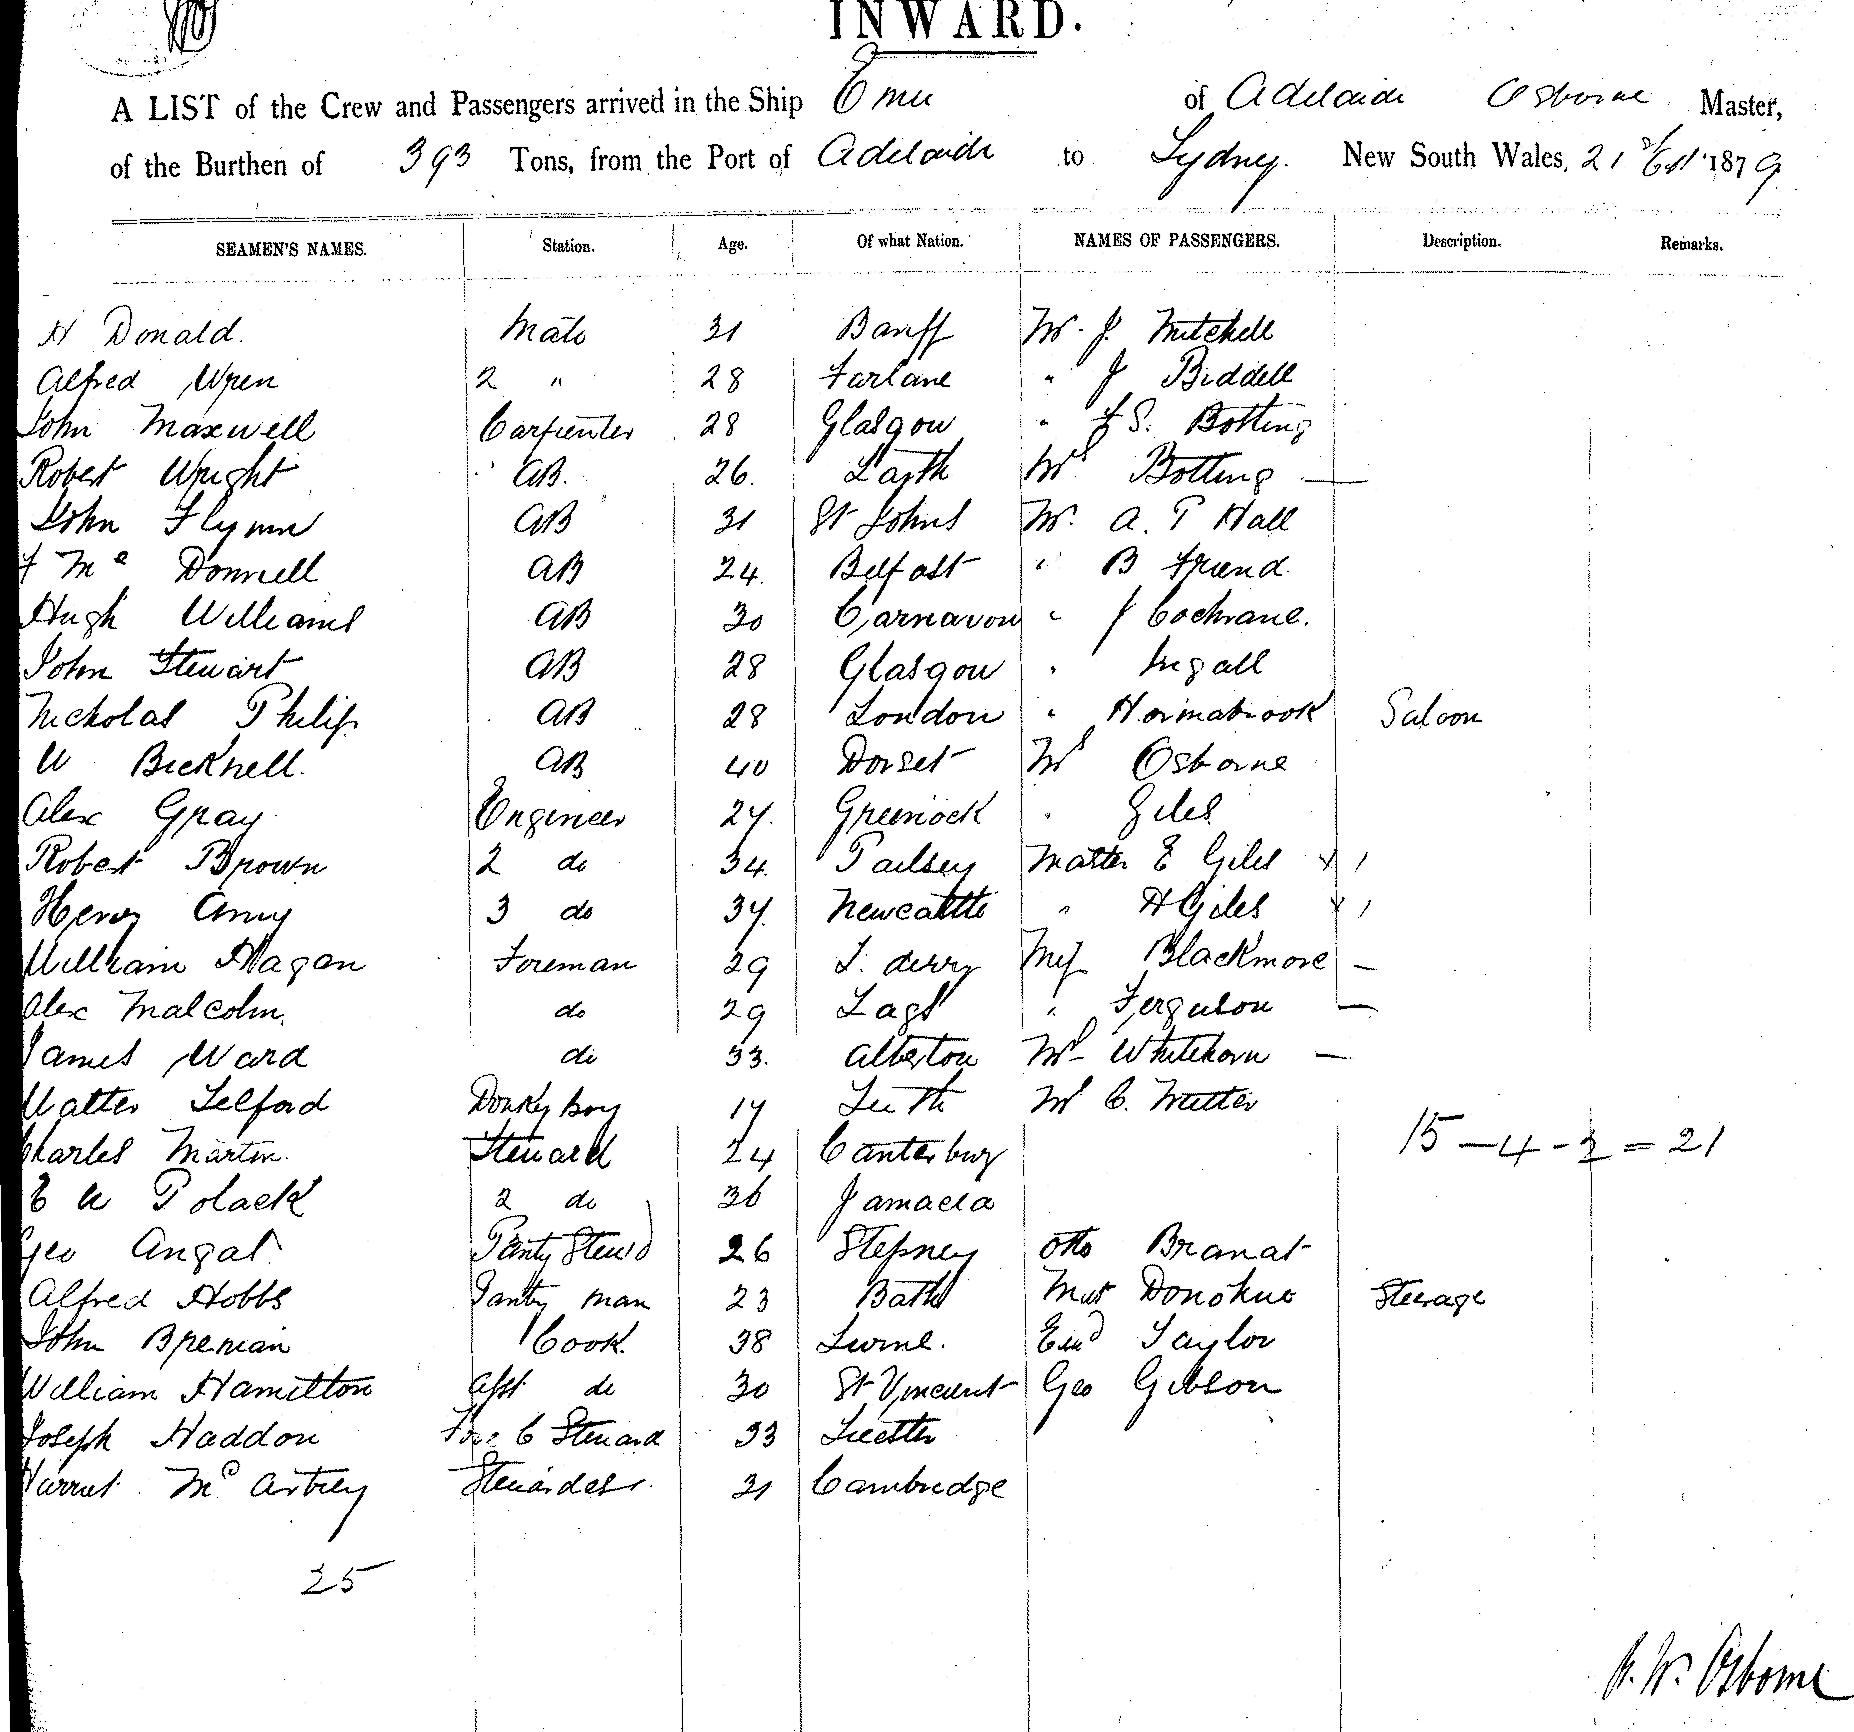 INWARD.
A LIST of the Crew and Passengers arrived in the Ship Emu of Adelaide Osborne Master,
of the Burthen of 393 Tons, from the Port of Adelaide to Sydney. New South Wales, 21 1879
SEAMEN'S NAMES. Station. Age. Of what Nation. NAMES OF PASSENGERS. Description. Remarks.
H Donald. Mate 31 Banff Mr. J. Mitchell
Alfred Wren 2 " 28 Farlane " J Biddell
John Maxwell Carpenter 28 Glasgow " F S. Botting
Robert Wright AB. 26. Mrs Botting —
John Flynn AB 31 St Johns Mr. A. P Hall
F Mc Donnell AB 24. Belfast " B Friend
Hugh Williams AB 30 Carnavon " J Cochrane.
John Stewart AB 28 Glasgow " Ingall
Nicholas Philip AB 28 London " Hornabrook Saloon
W Bicknell. AB 40 Dorset Mrs Osborne
Alex Gray Engineer 27. Greenock " Giles
Robert Brown 2 do 34. Pailsey Master E Giles
Henry Amy 3 do 37. Newcastle " H Giles
William Hagan Foreman 29 L. derry Miss Blackmore —
Alex Malcolm. do 29 " Ferguson —
James Ward do 33. Alberton Mrs Whitehorn —
Walter Telford Donkey boy 17 Leith Mr C.
15 – 4 - 2 = 21
Charles Martin. Steward 24 Canterbury
E W Polack 2 do 36 Jamaca
Geo Angas Panty Stewd 26 Stepney Otto Brandt
Alfred Hobbs Pantry man 23 Bath Donohue Steerage
John Brennan Cook. 38 Edwd Taylor
William Hamilton Asst do 30 St Vincent Geo Gibson
Joseph Haddon Fore C Steward 33
Harriet Mc Artney Stewardess. 31 Cambridge
25
Osborne